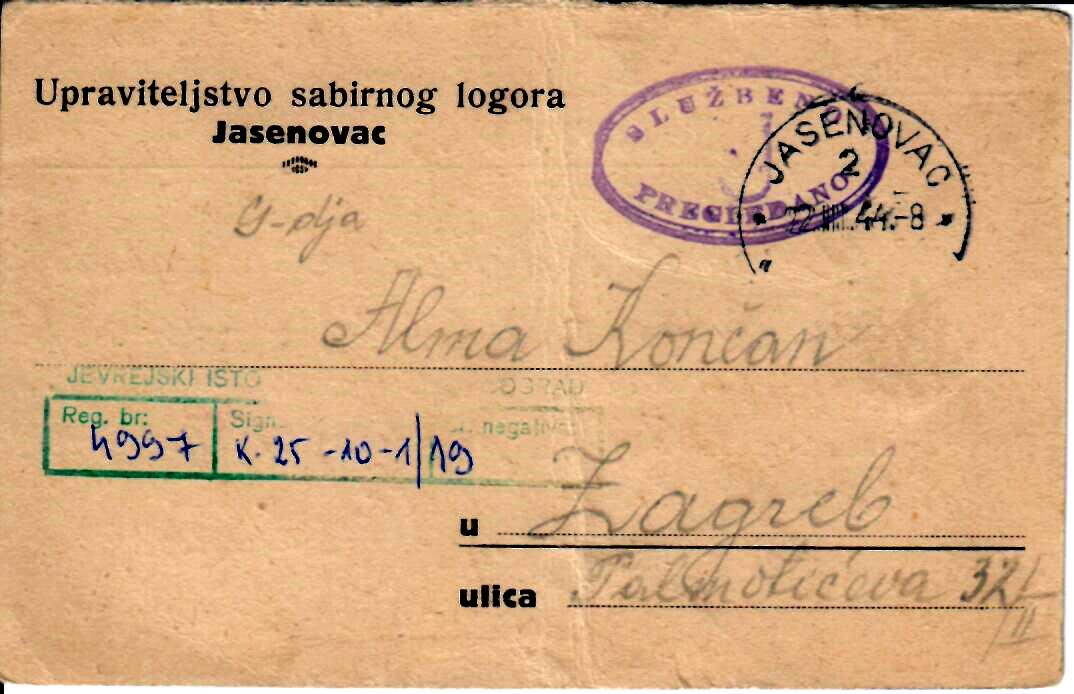 Upraviteljstvo sabirnog logora
Jasenovac
SLUŽBENO
PREGLEDANO
JASENOVAC
2
22. IIII. 44.-8
G-dja
Alma Končan
JEVREJSKI ISTO OGRAD
Reg. br: Sign. negativa
4997 K. 25-10-1/19
u Zagreb
ulica Palmotićeva 32/II